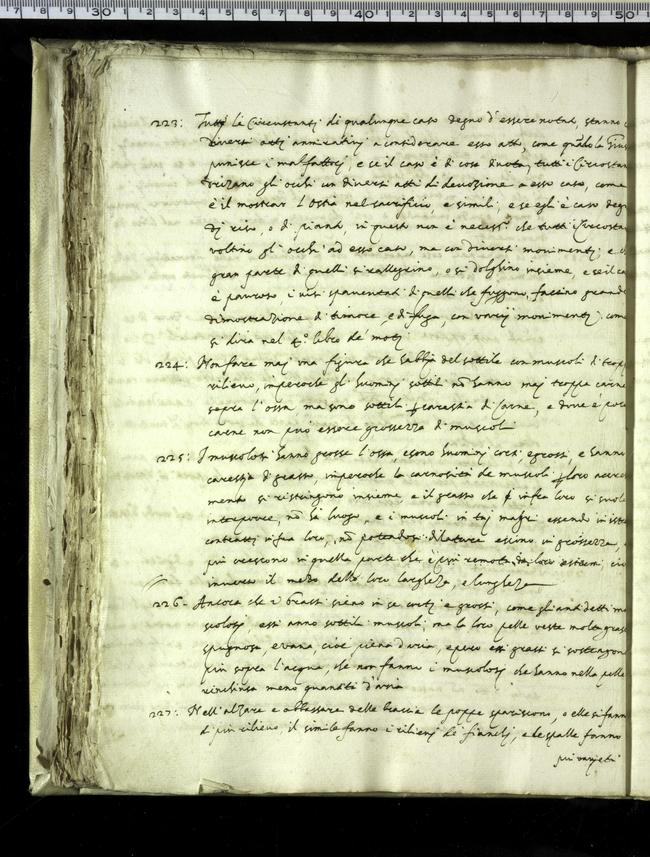 223: Tutti le Circunstanti di qualunque caso degno d'essere notat, stanno c
diversi atti ammirativj a considerare esso atto, come quãdo la Gius
punisce i malfattorj, e se il caso è di cosa divota, tutti i Circostan
drizano gli ochi con diversi atti di devozione a esso caso, come
è il mostrar l'Ostia nel sacrificio, e simili, e se egli è caso deg
di riso, o di pianto, in questo non è necess.º che tutti i Circosta
voltino gli ochi ad esso caso, ma con diversi movimenti, e c
gran parte di quelli si rallegrino, o si dolghino insieme, e se il ca
è pauroso, i visi spaventati di quelli che fuggono, faccino grande
dimostrazione di timore, e di fuga, con varij movimenti, come
si dira nel 4.º libro de' moti
224: Non fare maj una figura che habbja del sottile con muscoli di trop
rilievo, imperoche gli huominj sottili nõ hanno maj troppa carne
sopra l'ossa, ma sono sottili p carestia di carne, e dove è poca
carne non può essere grossezza di muscoli
225: I muscolosi hanno grosse l'ossa, e sono huominj corti e grossi, e hanno
carestia di grasso, imperoche la carnosità de muscoli p loro accresci
mento si ristringono insieme, e il grasso che infra loro si suole
interporre, nõ ha luogo, e i muscoli in taj magri essendo in
contratti infra loro, nõ potendosi dilatare essimo in grossezza, e
più crescono in quella parte che è più remota da loro estremi, cio
inverso il mezo della loro larghezza, e lunghezza
226- Ancora che i Grassi sieno in se corti e grossi, come gli anti detti mu
scolosi, essi anno sottili muscoli, ma la loro pelle veste molta grass
spugnosa, e vana, cioè piena d'aria, e però essi grassi si sostengon
più sopra l'acqua, che non fanno i muscolosi che hanno nella pelle
rinchiusa meno quantità d'aria
227: Nell'alzare e abbassare delle braccia le poppe spariscono, o elle si fann
di più rilievo, il simile fanno i rilievj de' fianchj, e le spalle fanno
più varietà